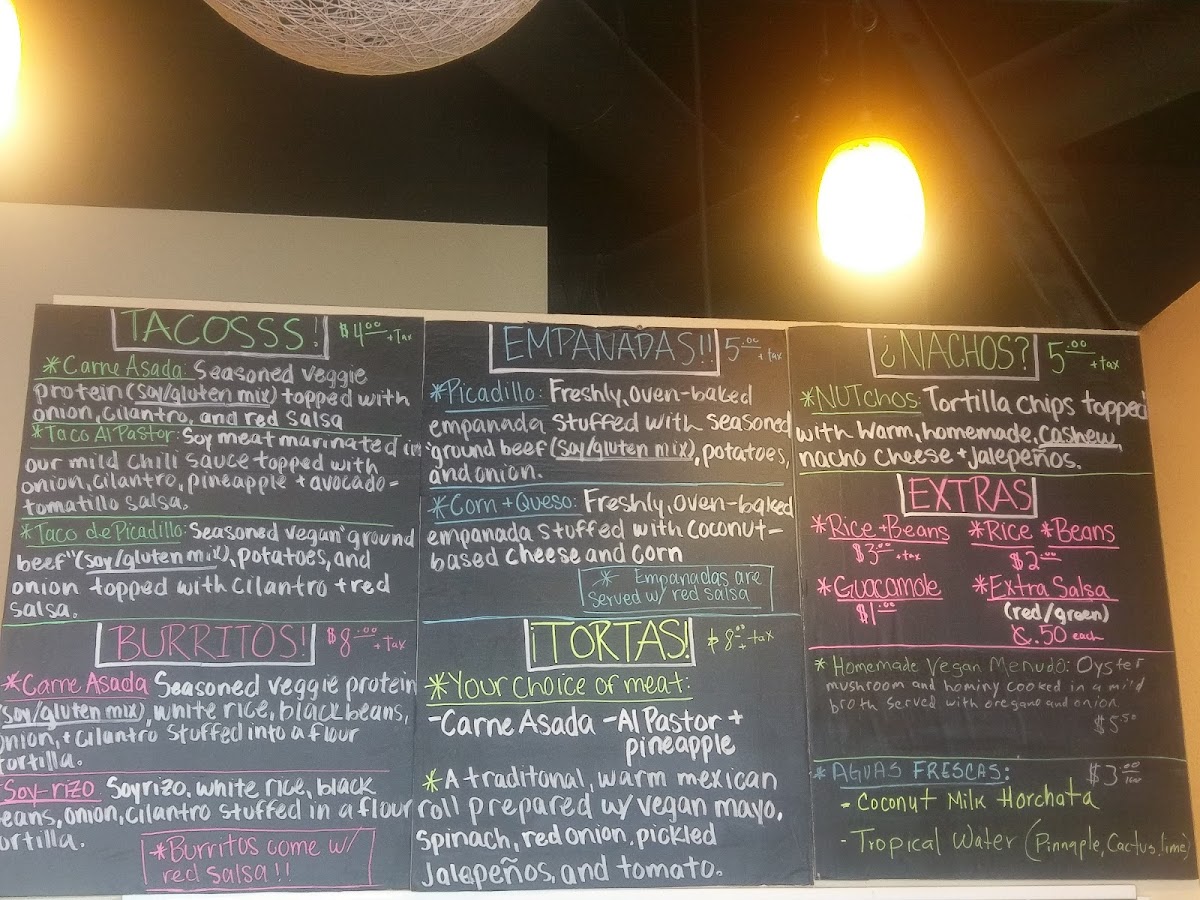 TACOSSS! $4.00 + Tax
*Carne Asada: Seasoned veggie
protein (soy/gluten mix) topped with
onion, cilantro, and red salsa
*Taco Al Pastor: Soy meat marinated in
our mild chili sauce topped with
onion, cilantro, pineapple + avocado-
tomatillo salsa.
*Taco de Picadillo: Seasoned vegan "ground
beef" (soy/gluten mix), potatoes, and
onion topped with cilantro + red
salsa.
BURRITOS! $8.00 + Tax
*Carne Asada Seasoned veggie protein
(soy/gluten mix), white rice, black beans,
onion, + cilantro stuffed into a flour
tortilla.
Soy-rizo Soyrizo, white rice, black
eans, onion, cilantro stuffed in a flour
ortilla.
*Burritos come w/
red salsa!!
EMPANADAS!! 5.00 + tax
*Picadillo: Freshly, oven-baked
empanada stuffed with seasoned
"ground beef (soy/gluten mix), potatoes,
and onion.
*Corn + Queso: Freshly, oven-baked
empanada stuffed with coconut-
based cheese and corn
* Empanadas are
served w/ red salsa
¡TORTAS! $8.00 + tax
*Your choice of meat:
-Carne Asada -Al Pastor +
pineapple
*A traditonal, warm mexican
roll prepared w/ vegan mayo,
spinach, red onion, pickled
jalapeños, and tomato.
¿NACHOS? 5.00 + tax
*NUTchos: Tortilla chips topped
with warm, homemade, cashew
nacho cheese + jalepeños.
EXTRAS
*Rice + Beans *Rice *Beans
$3.00 + tax $2.00
*Guacamole *Extra Salsa
$1.00 (red/green)
&.50 each
* Homemade Vegan Menudo: Oyster
mushroom and hominy cooked in a mild
broth served with oregano and onion
$5.50
* AGUAS FRESCAS: $3.00
- Coconut Milk Horchata
- Tropical Water (Pinnaple, Cactus, lime)